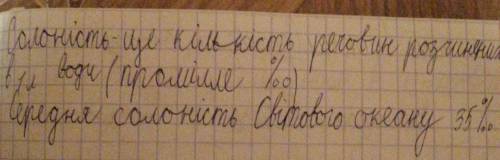 Солоність - це кількість речовин розчинених
в 1 л води (проміллє ‰)
Середня солоність Світового океану 35‰